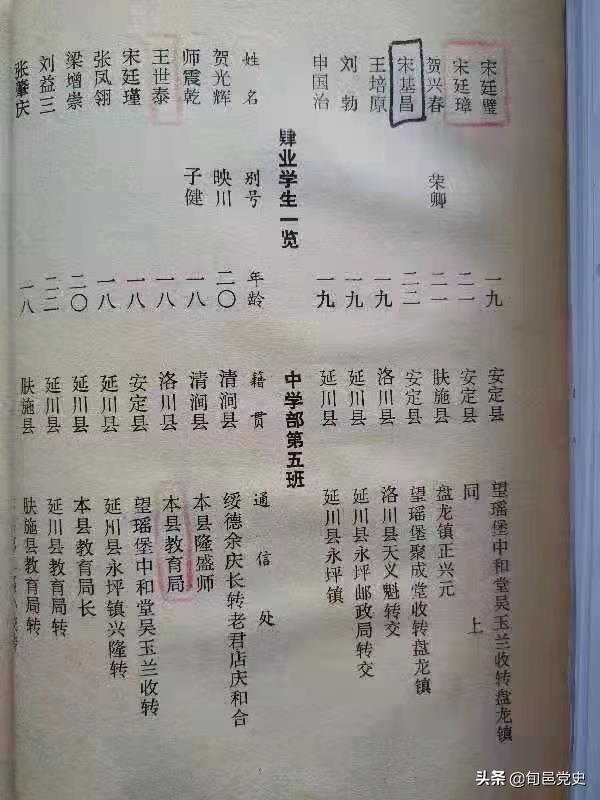 宋廷璧 一九 安定县 望瑶堡中和堂吴玉兰收转盘龙镇
宋廷璋 二一 安定县 同上
贺兴春 荣卿 二一 肤施县 盘龙镇正兴元
宋基昌 二二 安定县 望瑶堡聚成堂收转盘龙镇
王培原 一九 洛川县 洛川县天义魁转交
刘勃 一九 延川县 延川县永坪邮政局转交
申国治 一九 延川县 延川县永坪镇
肄业学生一览 中学部第五班
姓名 别号 年龄 籍贯 通信处
贺光辉 映川 二〇 清涧县 绥德余庆长转老君店庆和合
师震乾 子健 一八 清涧县 本县隆盛师
王世泰 一八 洛川县 本县教育局
宋廷瑾 一八 安定县 望瑶堡中和堂吴玉兰收转
张凤翎 一八 延川县 延川县永坪镇兴隆转
梁增崇 二〇 延川县 本县教育局长
刘益三 二二 延川县 延川县教育局转
张肇庆 一八 肤施县 肤施县教育局转
头条 @旬邑党史